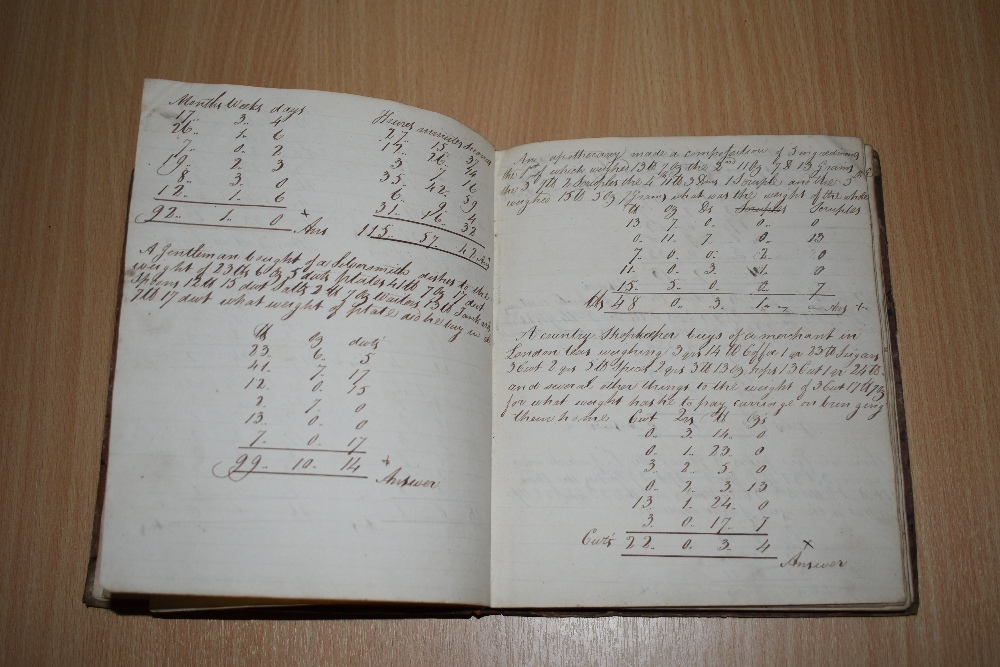 Months Weeks days
17.. 3.. 4
26.. 1.. 6
7.. 0.. 2
19.. 2.. 3
8.. 3.. 0
12.. 1.. 6
92.. 1.. 0 Ans
Hours minutes
27.. 15..
17.. 26.. 44
3.. 7.. 16
35.. 42.. 39
6.. 9.. 4
31.. 16.. 32
115.. 57.. 42 Ans
A Gentleman bought of a Silversmith dishes to the
weight of 23 lb 6 oz 5 dwts plates 41 lb 7 oz 17 dwt
Spoons 12 lb 15 dwt Salts 2 lb 7 oz Waiters 13 lb Tankards
7 lb 17 dwt what weight of plate did he buy in
lb oz dwts
23.. 6.. 5
41.. 7.. 17
12.. 0.. 15
2.. 7.. 0
13.. 0.. 0
7.. 0.. 17
99.. 10.. 14 + Answer
An apothecary made a composition of 5 ingredients
the 1st of which weighed 13 lb 7 oz the 2nd 11 oz 7 8 13 Grains
the 3 7 lb 2 Scruples the 4 11 lb 3 1 Scruple and the 5
weighed 15 lb 3 oz 7 Grains what was the weight of the whole
lb oz Ds Scruples
13 7 0.. 0.. 0
0.. 11.. 7 0.. 13
7.. 0.. 0.. 2.. 0
11.. 0.. 3.. 1.. 0
15.. 3.. 0.. 0.. 7
lbs 48 0.. 3.. 1.. Ans +
A country Shopkeeper buys of a merchant in
London weighing 3 qrs 14 lb Coffee 1 qr 23 lb Sugars
3 Cwt 2 qrs 5 lb Spices 2 qrs 3 lb 13 oz hops 13 Cwt 1 qr 24 lb
and several other things to the weight of 3 Cwt 17 lb 7 oz
for what weight has he to pay carriage on bringing
them home
Cwt Qrs lb Ozs
0.. 3.. 14.. 0
0.. 1.. 23.. 0
3.. 2.. 5.. 0
0.. 2.. 3.. 13
13.. 1.. 24.. 0
3.. 0.. 17.. 7
Cwts 22.. 0.. 3.. 4 × Answer